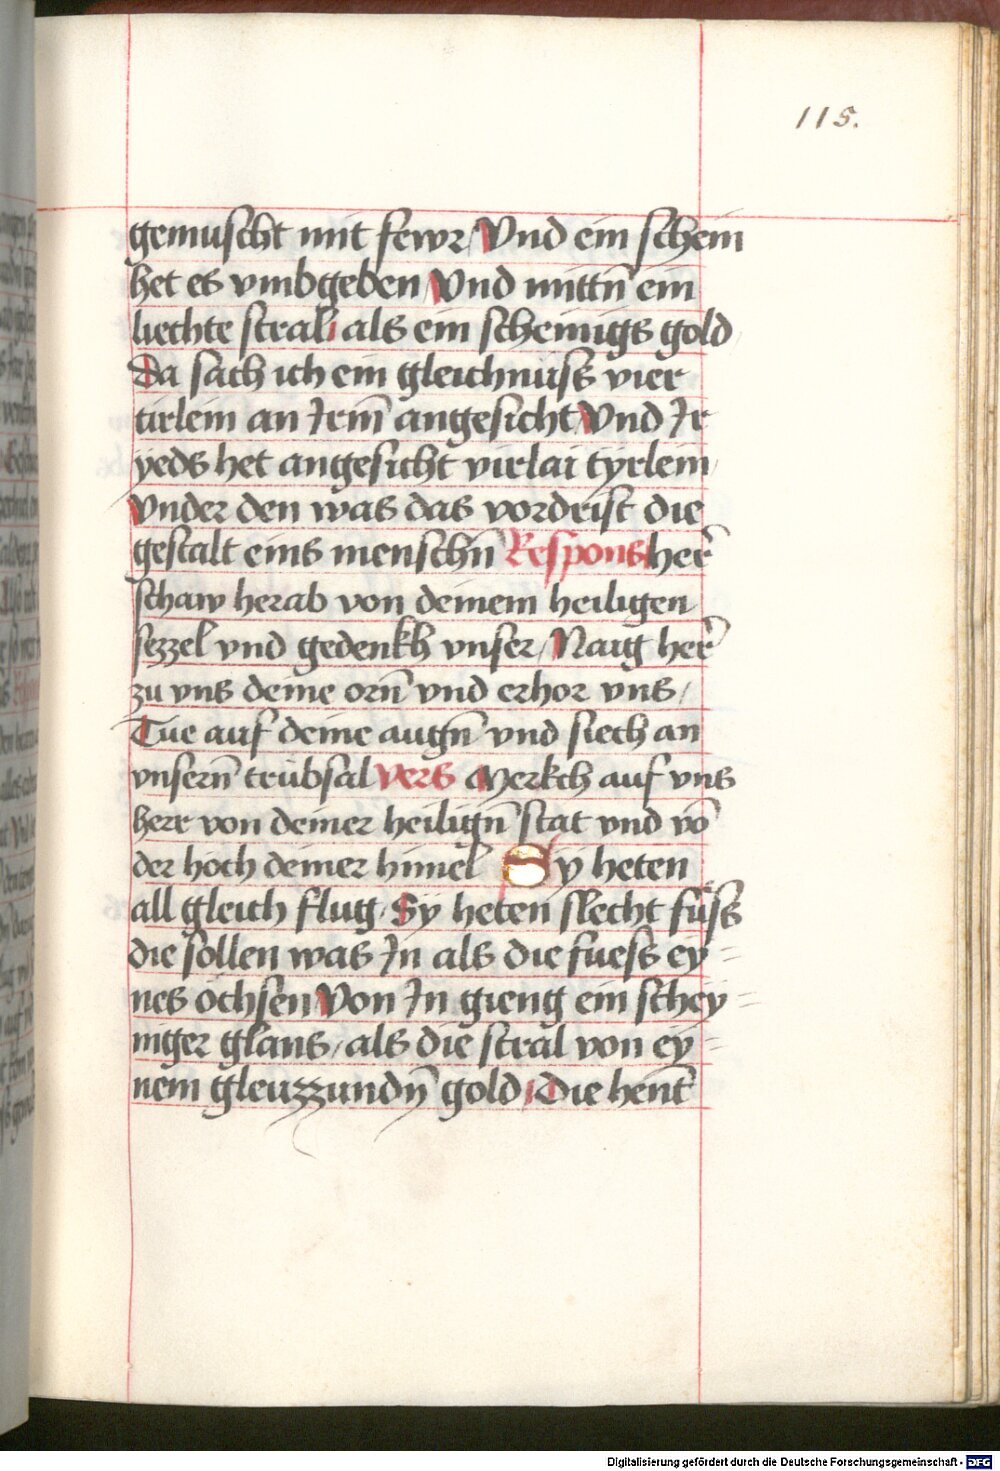 115.
gemuscht mit fewr / Vnd ein schein
het es vmbgeben / Vnd mittn̄ ein
liechte stral / als ein scheinigs gold
Da sach ich ein gleichnüss vier
tirlein an Irm̄ angesicht Vnd Ir
yeds het angesicht virlai tyrlein /
Vnder den was das vordrist die
gestalt eins menschn̄ Respons her̄
schaw herab von deinem heiligen
sezzel vnd gedenkh vnser / Naig her̄
zu vns deine orn̄ vnd erhor vns /
Tue auf deine augn̄ vnd siech an
vnsern̄ trübsal Vers Merkch auf vns
herr von deiner heilign̄ stat vnd vō
der höch deiner himel Sy heten
all gleich flug / Sy heten slecht füss
die sollen was In als die fuess ey =
nes öchsen Von In gieng ein schey =
niger glans / als die stral von ey =
nem gleuzzundn̄ gold / Die hent
Digitalisierung gefördert durch die Deutsche Forschungsgemeinschaft - DFG